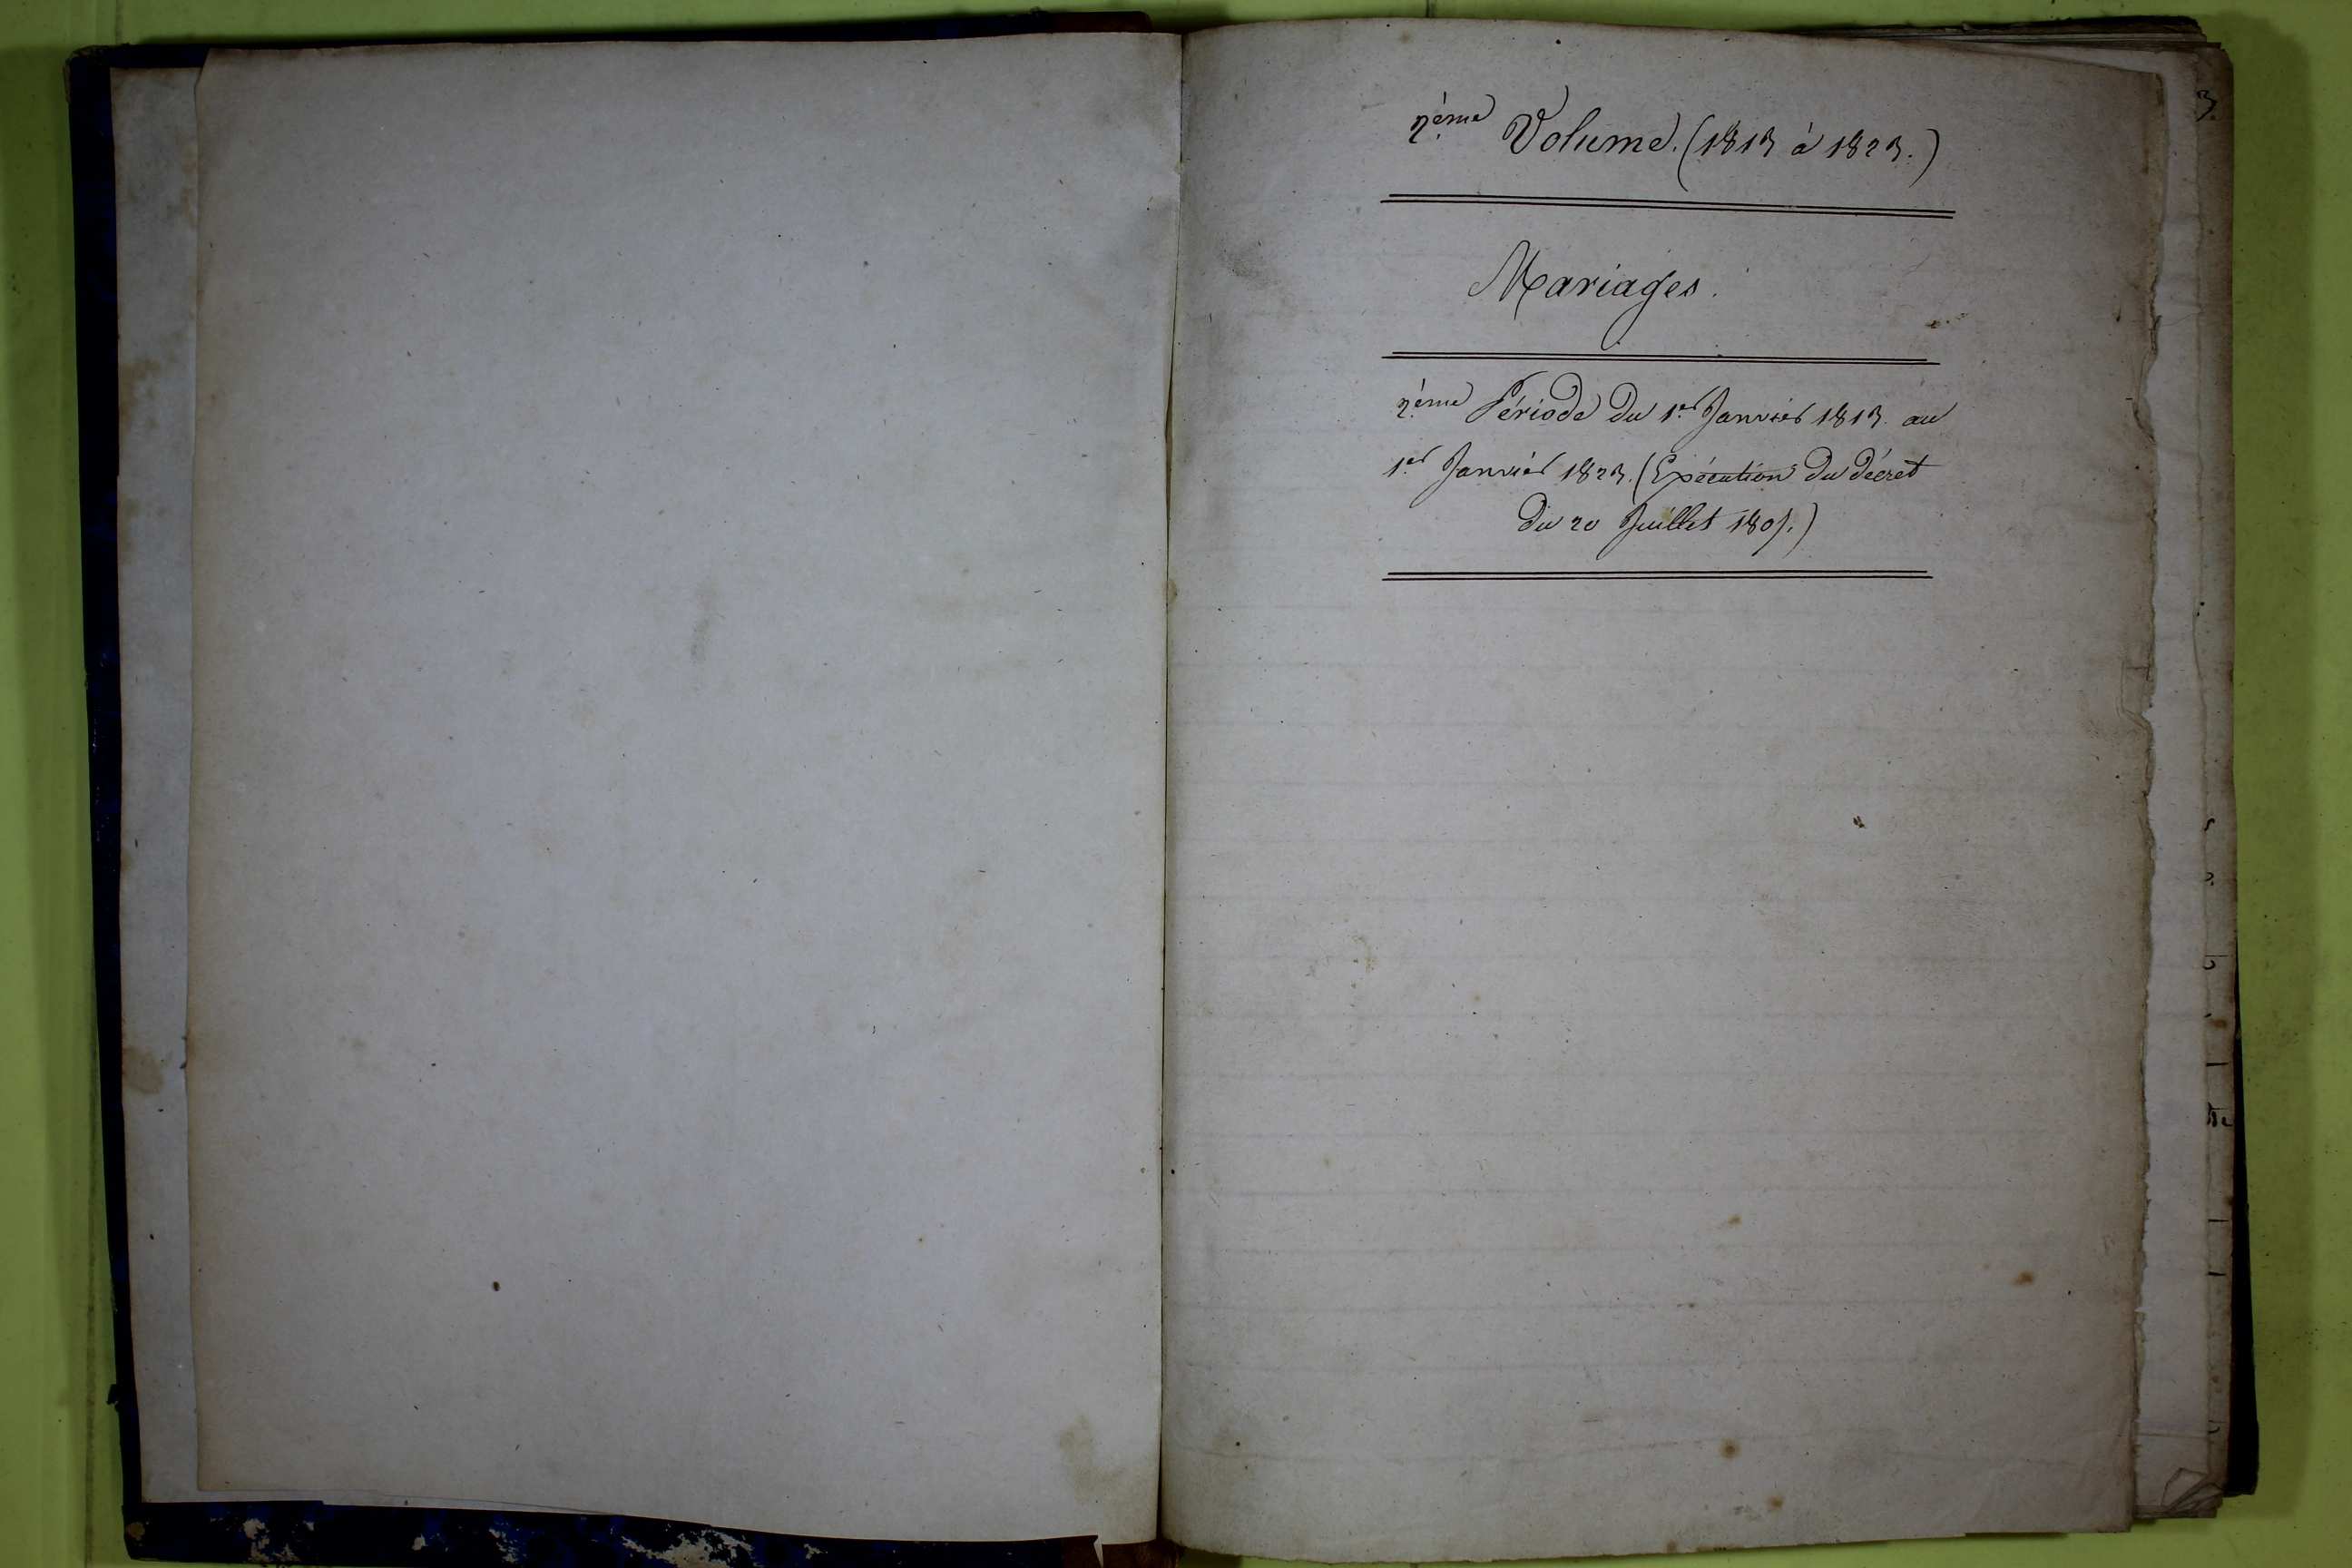 2ème Volume. (1813 à 1823.)
Mariages.
2ème Période du 1er Janvier 1813 au
1er Janvier 1823. (Exécution du décret
du 20 Juillet 1807.)